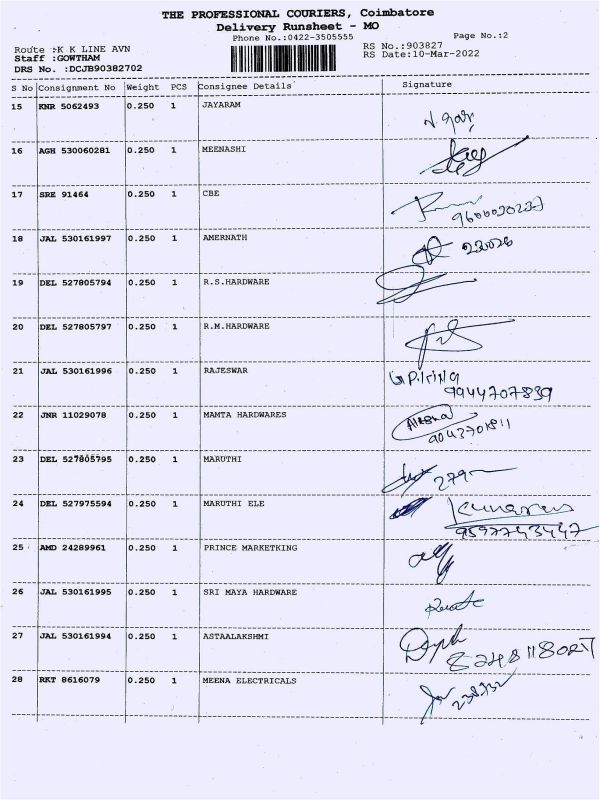 THE PROFESSIONAL COURIERS, Coimbatore
Delivery Runsheet - MO
Phone No.:0422-3505555
Page No.:2
Route :K K LINE AVN
Staff :GOWTHAM
DRS No. :DCJB90382702
RS No.:903827
RS Date:10-Mar-2022
S No Consignment No Weight PCS Consignee Details Signature
15 KNR 5062493 0.250 1 JAYARAM
16 AGH 530060281 0.250 1 MEENASHI
17 SRE 91464 0.250 1 CBE
18 JAL 530161997 0.250 1 AMERNATH
19 DEL 527805794 0.250 1 R.S.HARDWARE
20 DEL 527805797 0.250 1 R.M.HARDWARE
21 JAL 530161996 0.250 1 RAJESWAR
9944707839
22 JNR 11029078 0.250 1 MAMTA HARDWARES
23 DEL 527805795 0.250 1 MARUTHI
24 DEL 527975594 0.250 1 MARUTHI ELE
9597743447
25 AMD 24289961 0.250 1 PRINCE MARKETKING
26 JAL 530161995 0.250 1 SRI MAYA HARDWARE
27 JAL 530161994 0.250 1 ASTAALAKSHMI
28 RKT 8616079 0.250 1 MEENA ELECTRICALS